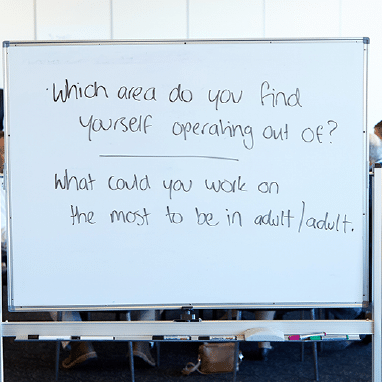 Which area do you find
yourself operating out of?
What could you work on
the most to be in adult/adult.